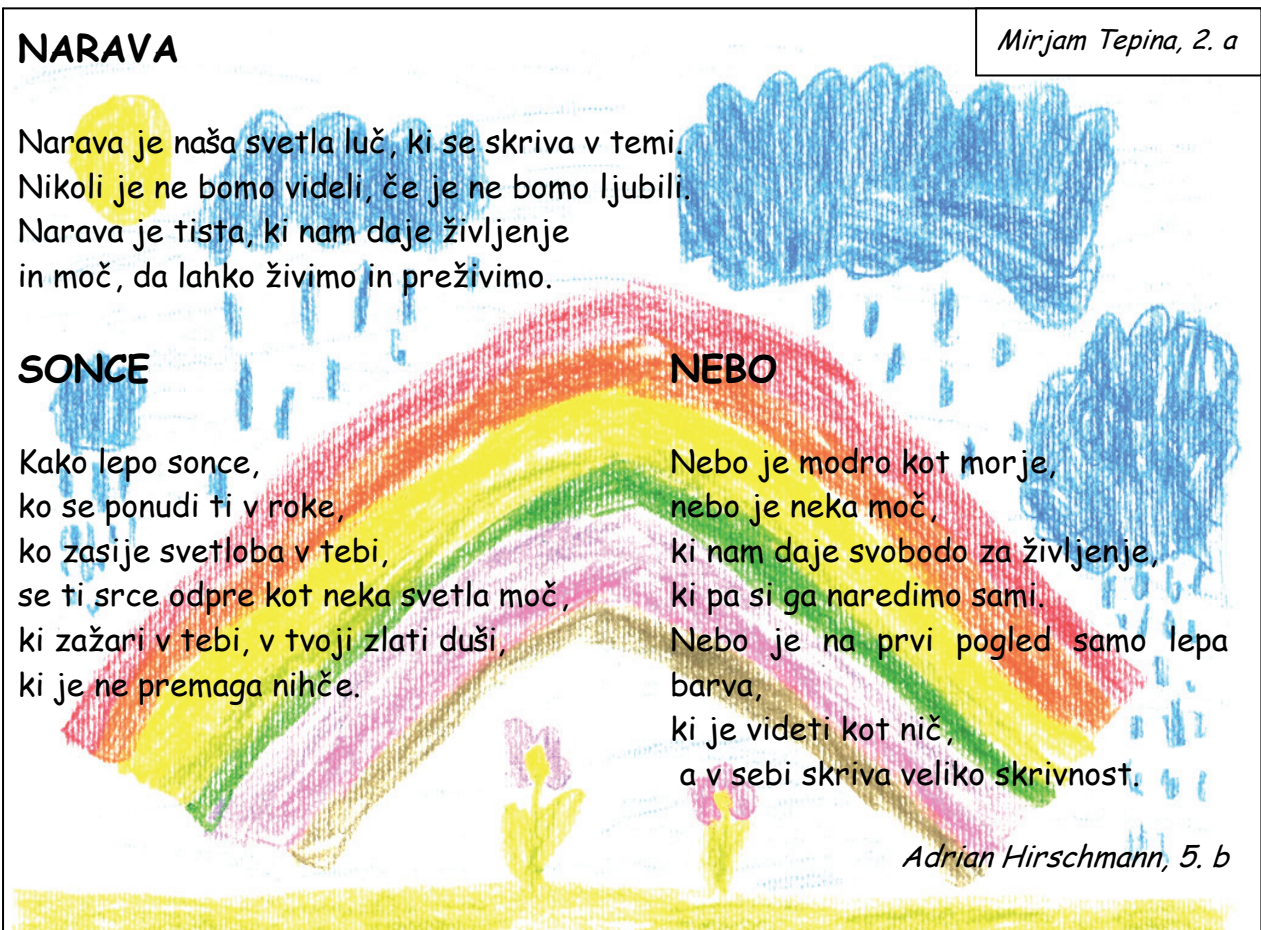 NARAVA
Mirjam Tepina, 2. a
Narava je naša svetla luč, ki se skriva v temi.
Nikoli je ne bomo videli, če je ne bomo ljubili.
Narava je tista, ki nam daje življenje
in moč, da lahko živimo in preživimo.
SONCE
Kako lepo sonce,
ko se ponudi ti v roke,
ko zasije svetloba v tebi,
se ti srce odpre kot neka svetla moč,
ki zažari v tebi, v tvoji zlati duši,
ki je ne premaga nihče.
NEBO
Nebo je modro kot morje,
nebo je neka moč,
ki nam daje svobodo za življenje,
ki pa si ga naredimo sami.
Nebo je na prvi pogled samo lepa
barva,
ki je videti kot nič,
a v sebi skriva veliko skrivnost.
Adrian Hirschmann, 5. b